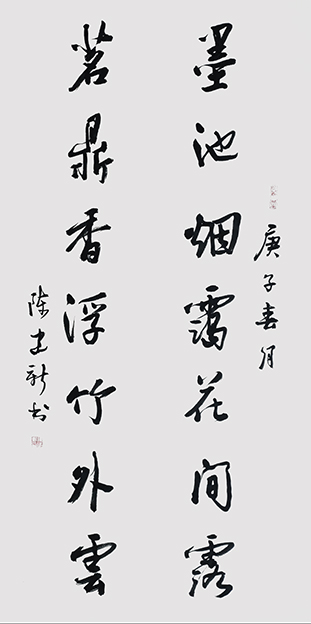 庚子春月
墨池烟霭花间露
茗鼎香浮竹外雲
陈建新书